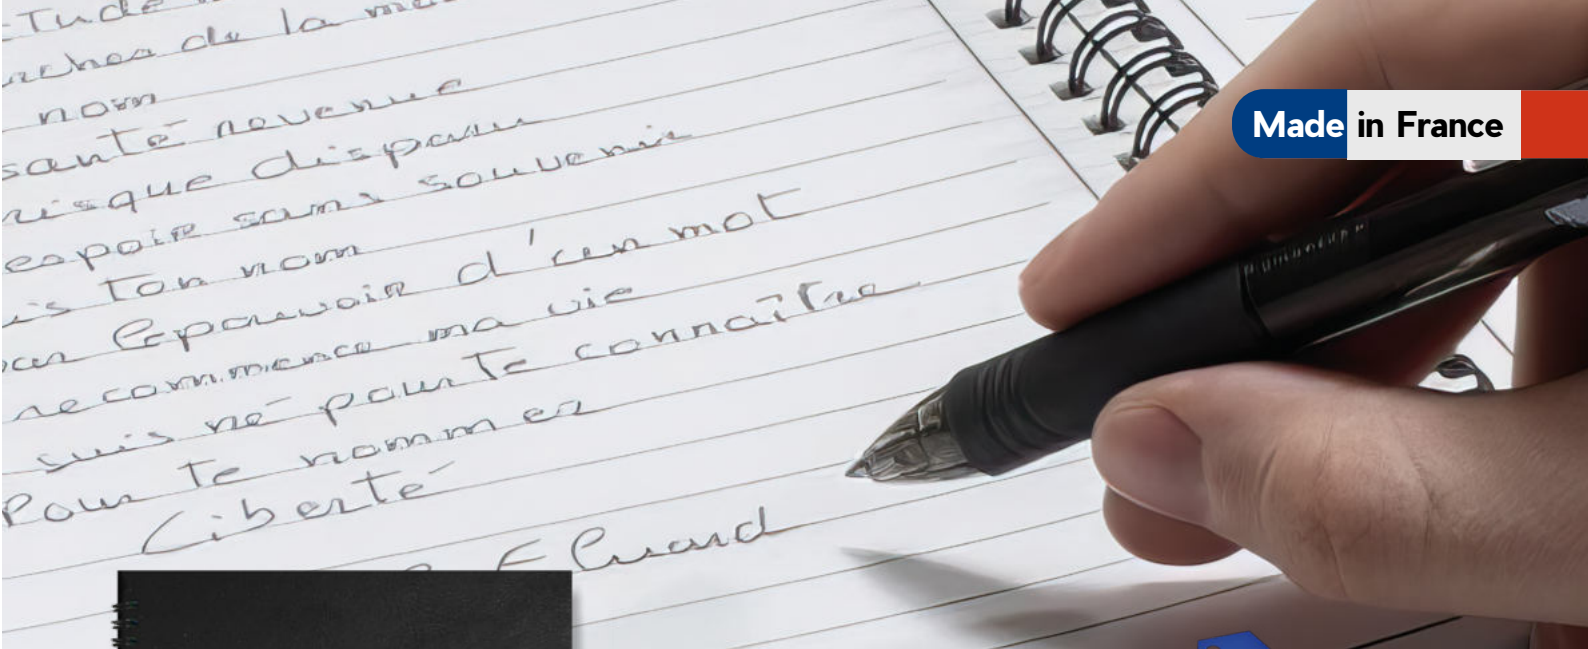 tude
rches de la mo
nom
santé revenue
risque disparu
espoir sans souvenir
is ton nom
par le pouvoir d'un mot
recommence ma vie
suis né pour te connaître
Pour te nommer
Liberté
Eluard
Made in France